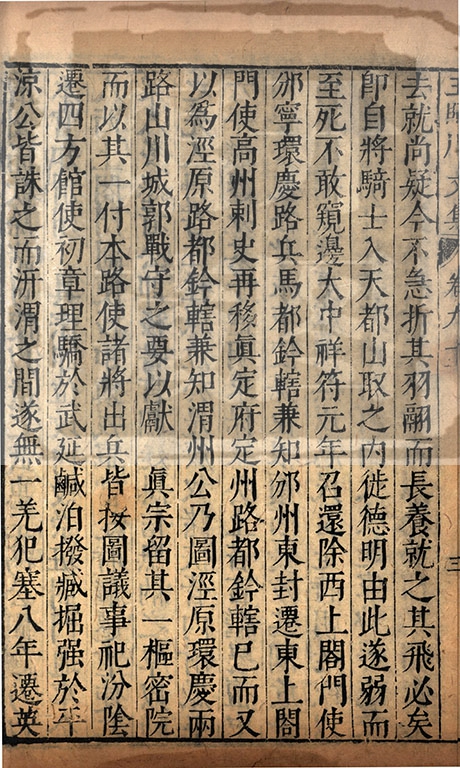 王臨川文集 卷九十 三
去就尚疑今不急折其羽翮而長養就之其飛必矣
卽自將騎士入天都山取之內徙德明由此遂弱而
至死不敢窺邊大中祥符元年召還除西上閤門使
邠寧環慶路兵馬都鈐轄兼知邠州東封遷東上閤
門使高州刺史再移眞定府定州路都鈐轄已而又
以爲涇原路都鈐轄兼知渭州公乃圖涇原環慶兩
路山川城郭戰守之要以獻 眞宗留其一樞密院
而以其一付本路使諸將出兵皆按圖議事祀汾陰
遷四方館使初章理驕於武延鹹泊撥臧掘强於平
涼公皆誅之而汧渭之間遂無一羌犯塞八年遷英